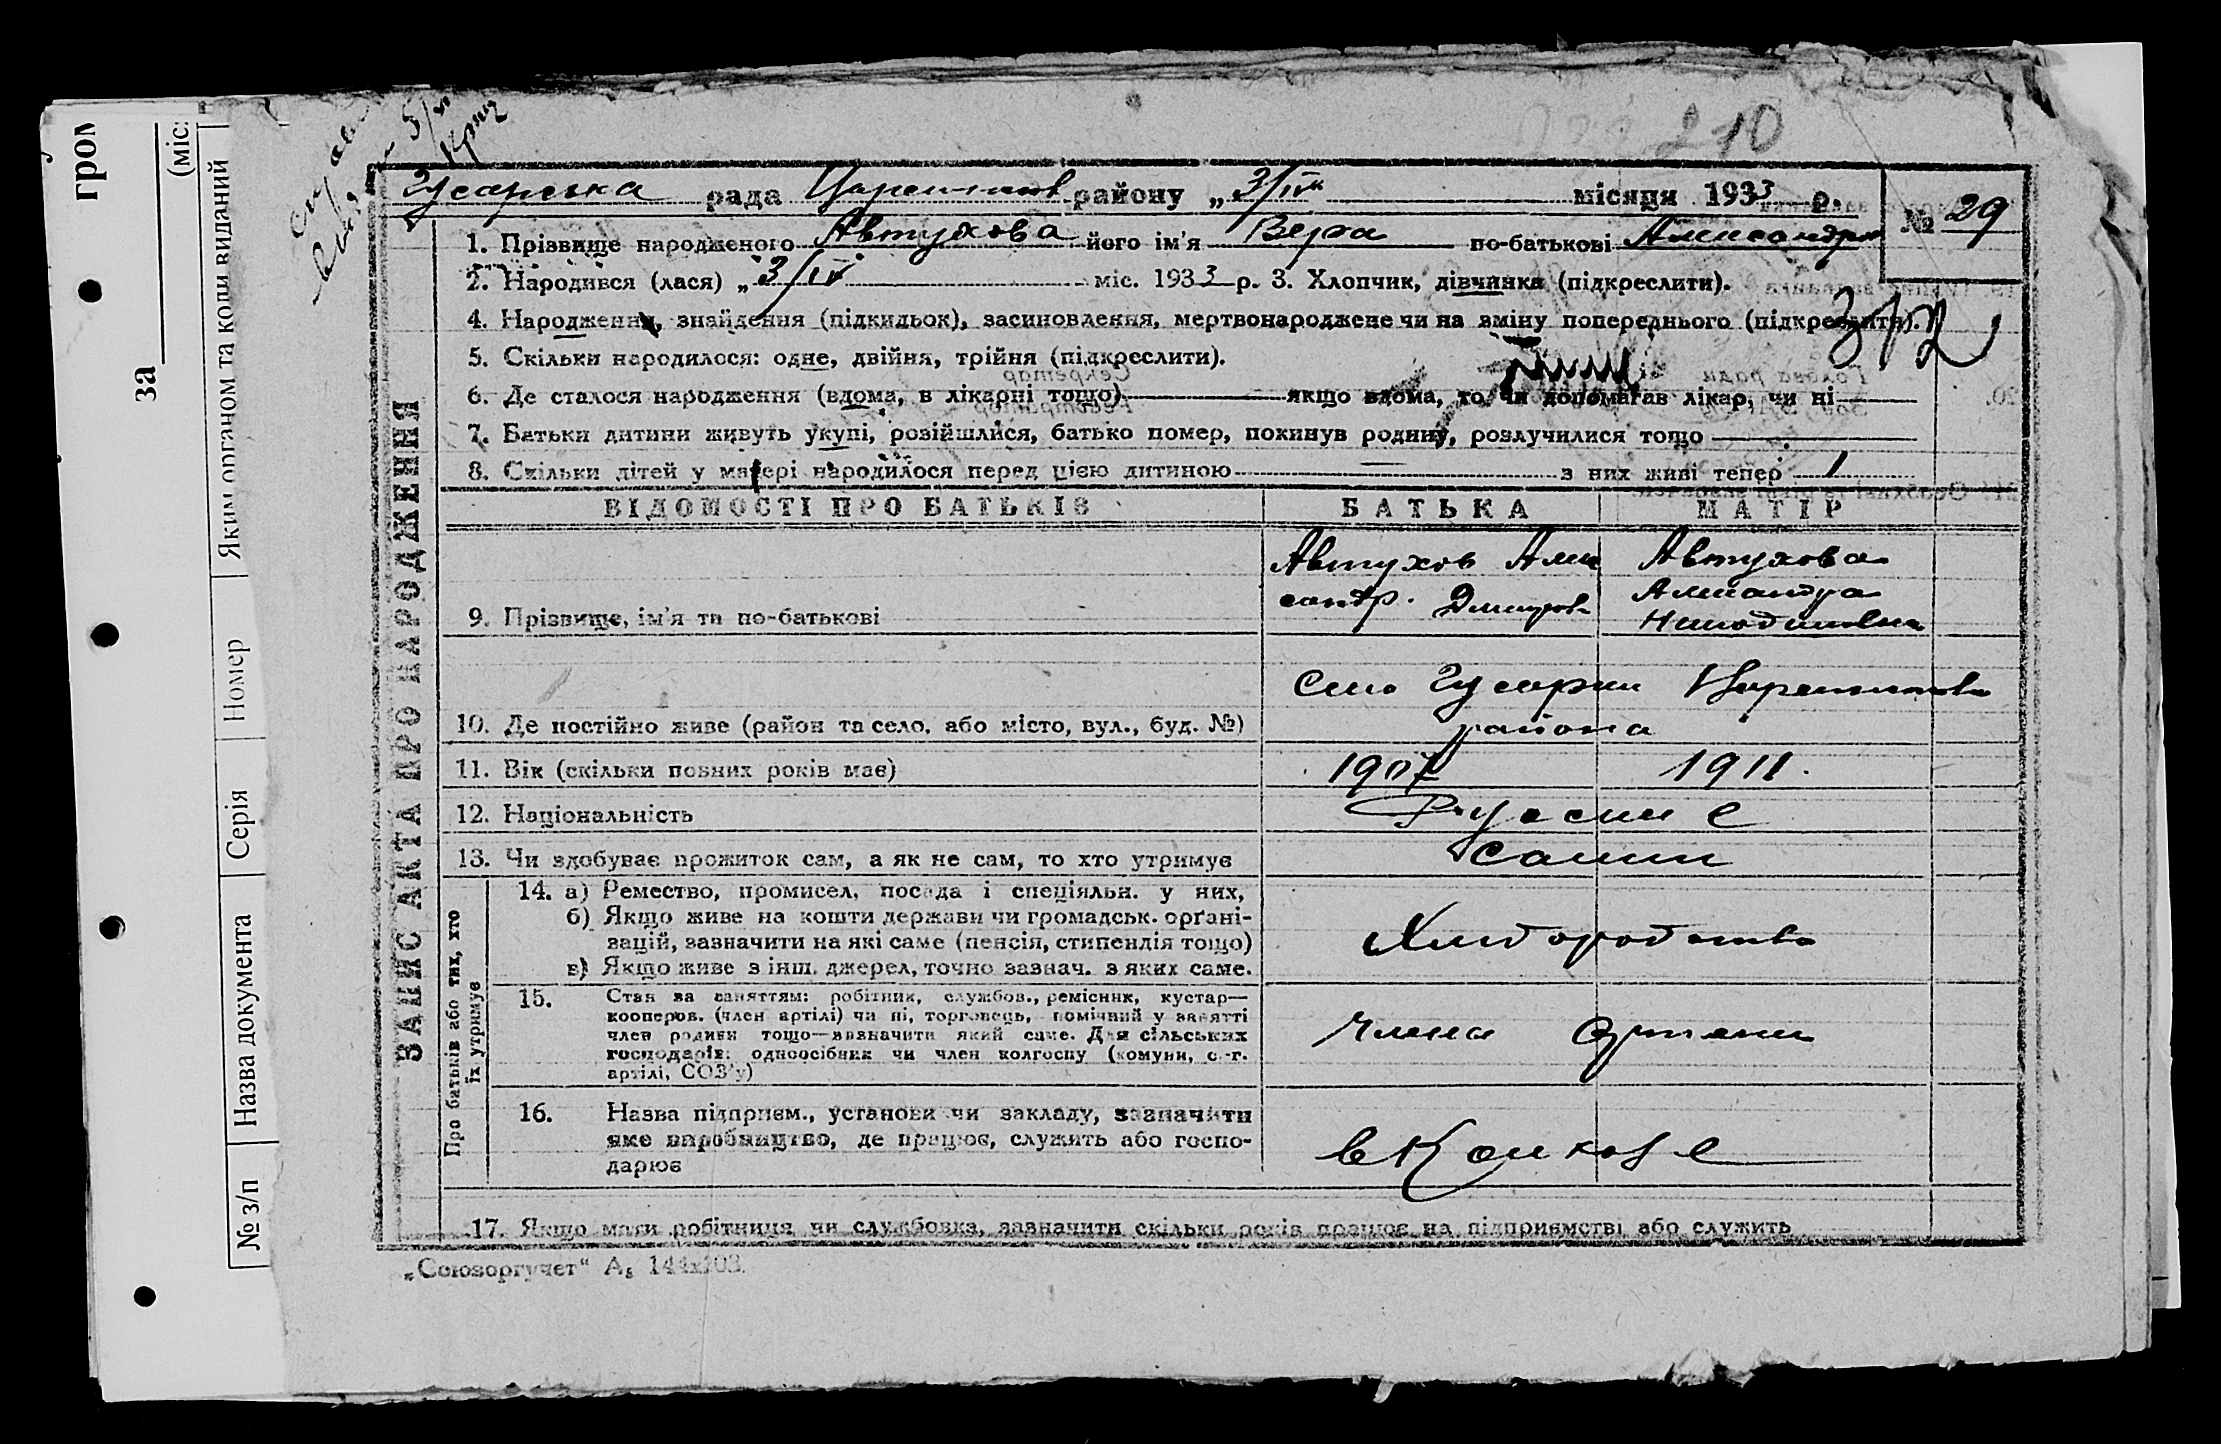 210
Гусарська рада района району „3/IV" місяця 1933 р.
№ 29
1. Прізвище народженого Автухова його ім'я Вера по-батькові
2. Народився (лася) „3/IV міс. 1933 р. 3. Хлопчик, дівчинка (підкреслити).
4. Народження, знайдення (підкидьок), засиновлення, мертвонароджене чи на зміну попереднього (підкреслити).
5. Скільки народилося: одне, двійня, трійня (підкреслити).
6. Де сталося народження (вдома, в лікарні тощо) якщо вдома, то чи допомагав лікар, чи ні
7. Батьки дитини живуть укупі, розійшлися, батько помер, покинув родину, розлучилися тощо
8. Скільки дітей у матері народилося перед цією дитиною — з них живі тепер 1
ЗАПИС АКТА ПРО НАРОДЖЕННЯ
ВІДОМОСТІ ПРО БАТЬКІВ БАТЬКА МАТІР
Автухов Алек Автухова
сандр. Дмитров
9. Прізвище, ім'я та по-батькові
Село Гусарки
10. Де постійно живе (район та село, або місто, вул., буд. №) района
11. Вік (скільки повних років має) 1907 1911.
12. Національність Русские
13. Чи здобуває прожиток сам, а як не сам, то хто утримує сами
Про батьків або тих, хто їх утримує
14. а) Ремество, промисел, посада і спеціяльн. у них,
б) Якщо живе на кошти держави чи громадськ. орґані-
зацій, зазначити на які саме (пенсія, стипендія тощо)
в) Якщо живе з інш. джерел, точно зазнач. з яких саме.
Хлебородство
15. Стан за заняттям: робітник, службов., ремісник, кустар—
кооперов. (член артілі) чи ні, торговець, помічний у занятті
член родини тощо—зазначити який саме. Для сільських
господарів: одноосібник чи член колгоспу (комуни, с.-г.
артілі, СОЗ'у)
Члены Артели
16. Назва підприєм., установи чи закладу, зазначити
яке виробництво, де працює, служить або госпо-
дарює
в Колхозе
17. Якщо мати робітниця чи службовка, зазначити скільки років працює на підприємстві або служить
„Союзоргучет"
гром
(міс
за
Яким органом та коли виданий
Номер
Серія
Назва документа
№ з/п